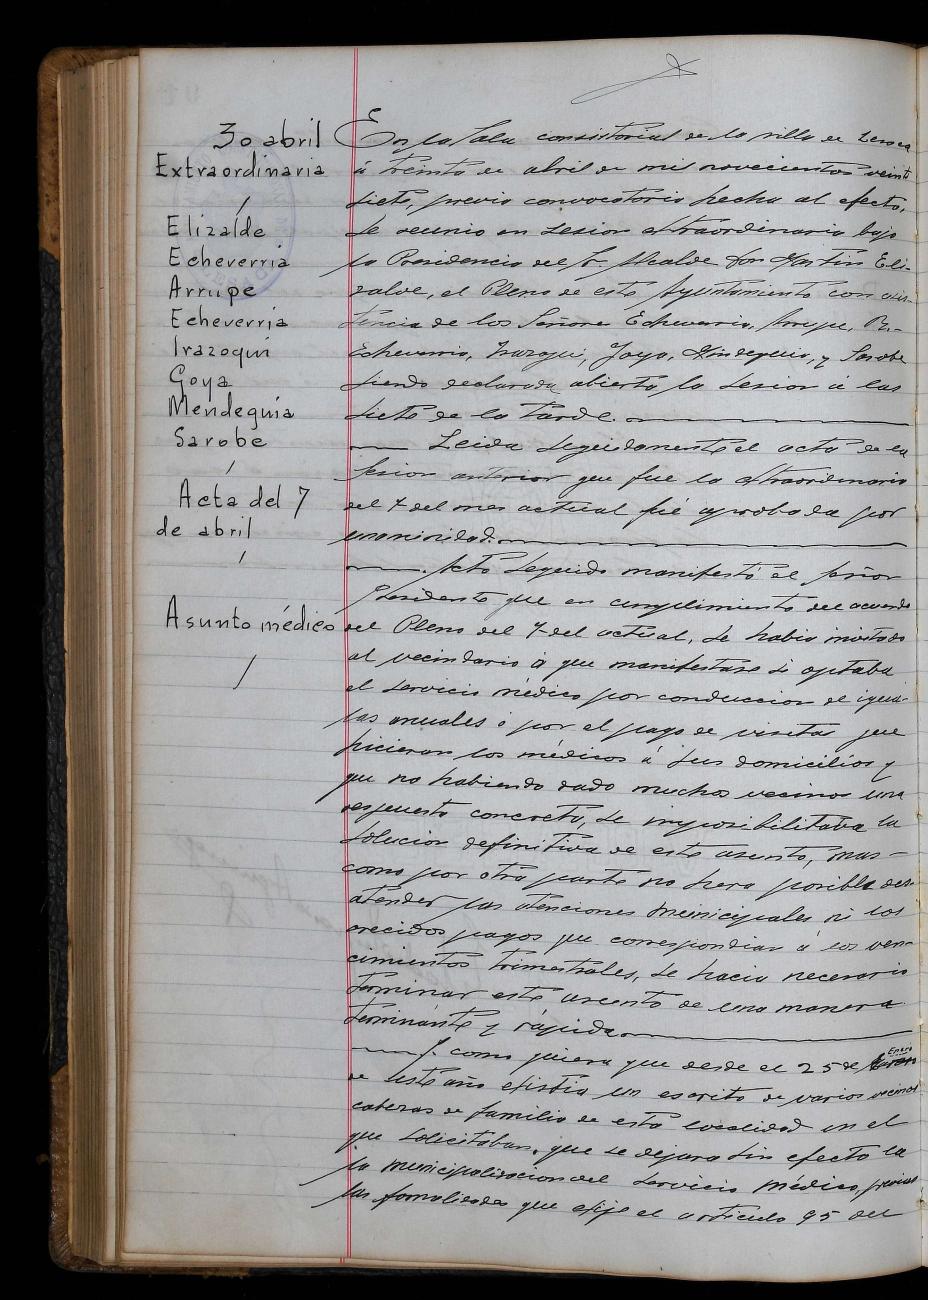 30 abril
Extraordinaria
Elizalde
Echeverria
Arrupe
Echeverria
Irazoqui
Goya
Mendeguia
Sarobe
Acta del 7
de abril
Asunto médico
En la Sala consistorial de la villa de Lesaca
á treinta de abril de mil novecientos veinti
siete, previa convocatoria hecha al efecto,
se reunio en sesion extraordinaria bajo
la Presidencia del Sr. Alcalde Don Martin Eli-
zalde, el Pleno de este Ayuntamiento con asis-
tencia de los Señores Echeverria, Arrupe,
Echeverria, Irazoqui, Goya, Mendeguia, y Sarobe
siendo declarada abierta la sesion á las
siete de la tarde.
Leida seguidamente el acta de la
sesion anterior que fue la extraordinaria
del 7 del mes actual fué aprobada por
unanimidad.
Acto seguido manifestó el señor
Presidente que en cumplimiento del acuerdo
del Pleno del 7 del actual, se habia invitado
al vecindario á que manifestase si optaba
el servicio médico por conduccion de igua-
las anuales ó por el pago de visitas que
hicieran los médicos á sus domicilios y
que no habiendo dado muchos vecinos una
respuesta concreta, se imposibilitaba la
solucion definitiva de este asunto, mas
como por otra parte no hera posible des-
atender las atenciones municipales ni los
crecidos pagos que correspondian á los ven-
cimientos trimestrales, se hacia necesario
terminar este asunto de una manera
terminante y rápida.
Y como quiera que desde el 25 de Enero
de este año existia un escrito de varios vecinos
cabezas de familia de esta localidad en el
que solicitaban, que se dejara sin efecto la
la municipalizacion del servicio médico, previas
las formalidades que exije el articulo 95 del